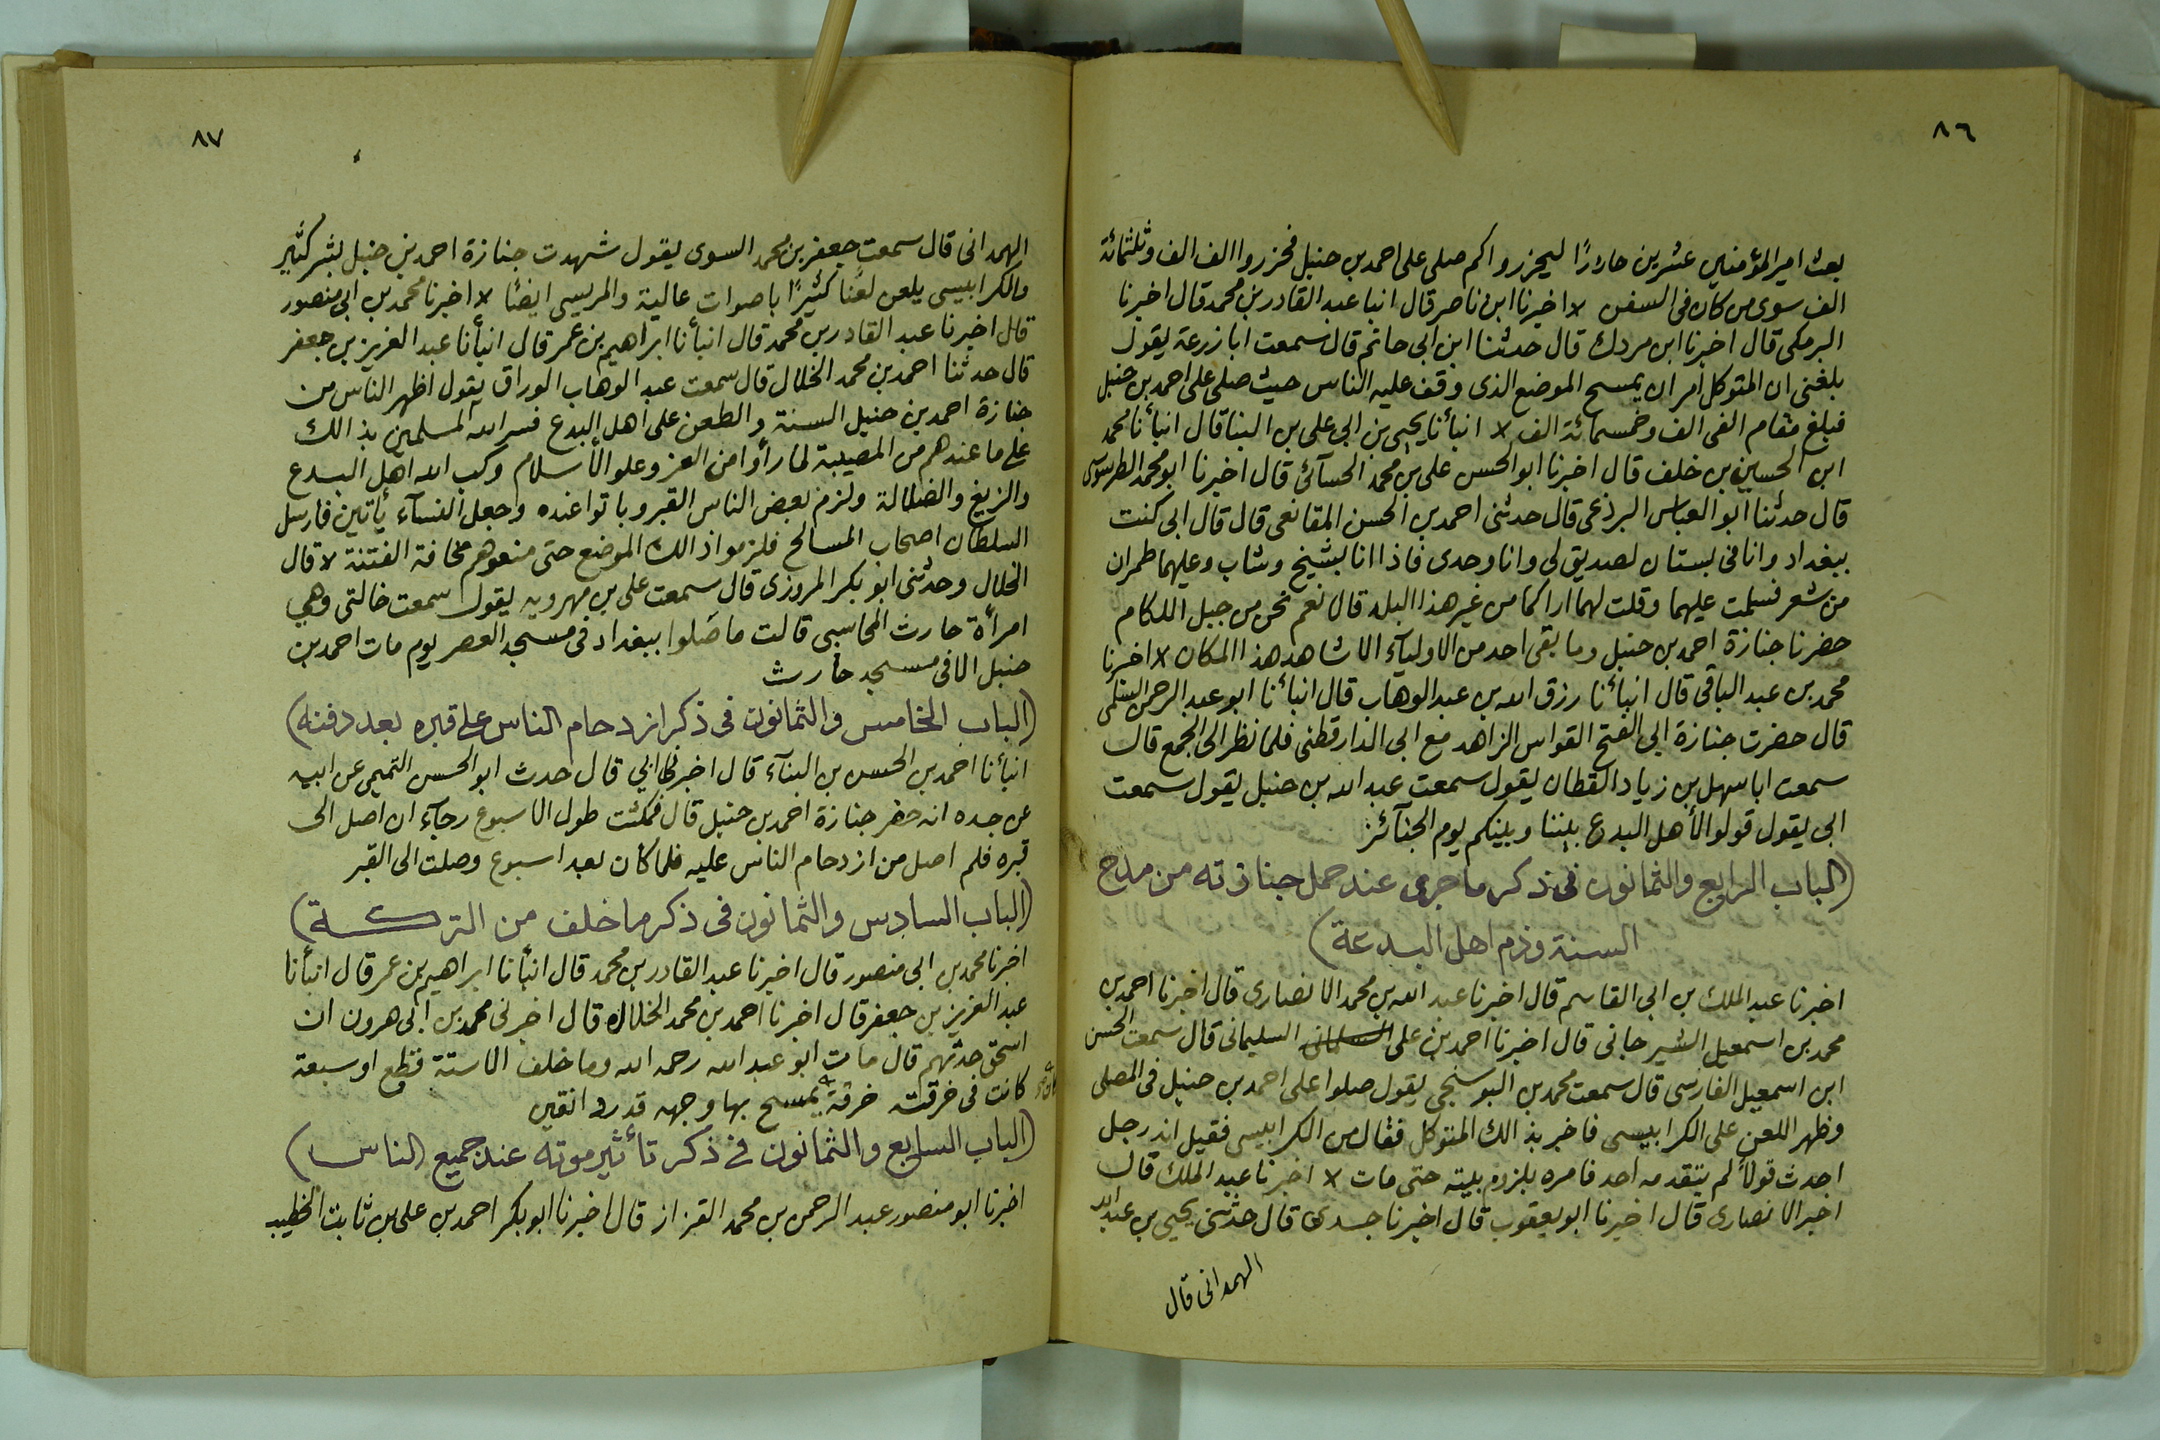 ٨٦
بعث امير المؤمنين عشرين حازرًا ليحزروا كم صلى على احمد بن حنبل فحزروا الف الف وثلثمائة
الف سوى من كان فى السفن لا اخبرنا ابن ناصر قال انبا عبد القادر بن محمد قال اخبرنا
البرمكى قال اخبرنا ابن مردك قال حدثنا ابن ابى حاتم قال سمعت ابا زرعة يقول
بلغنى ان المتوكل امر ان يمسح الموضع الذى وقف عليه الناس حيث صلى على احمد بن حنبل
فبلغ مقام الفى الف وخمسمائة الف لا انبأنا يحيى بن ابى على بن البنا قال انبأنا محمد
ابن الحسين بن خلف قال اخبرنا ابو الحسن على بن محمد الحسآئى قال اخبرنا ابو محمد الطرسوسى
قال حدثنا ابو العباس البرذعى قال حدثنى احمد بن الحسن المقانعى قال قال ابى كنت
ببغداد وانا فى بستان لصديق لى وانا وحدى فاذا انا بشيخ وشاب وعليهما طمران
من شعر فسلمت عليهما وقلت لهما اراكما من غير هذا البلد قال نعم نحن من جبل اللكام
حضرنا جنازة احمد بن حنبل وما بقى احد من الاوليآء الا شاهد هذا المكان لا اخبرنا
محمد بن عبد الباقى قال انبأنا رزق الله بن عبد الوهاب قال انبأنا ابو عبد الرحمن السلمى
قال حضرت جنازة ابى الفتح القواس الزاهد مع ابى الدارقطنى فلما نظر الى الجمع قال
سمعت ابا سهل بن زياد القطان يقول سمعت عبد الله بن حنبل يقول سمعت
ابى يقول قولوا لأهل البدع بيننا وبينكم يوم الجنآئز
(الباب الرابع والثمانون فى ذكر ما جرى عند حمل جنازته من مدح
السنة وذم اهل البدعة)
اخبرنا عبد الملك بن ابى القاسم قال اخبرنا عبد الله بن محمد الانصارى قال اخبرنا احمد بن
محمد بن اسمعيل الشيرجانى قال اخبرنا احمد بن على السليمانى قال سمعت الحسن
ابن اسمعيل الفارسى قال سمعت محمد بن البوسنجى يقول صلوا على احمد بن حنبل فى المصلى
وظهر اللعن على الكرابيسى فاخبر بذالك المتوكل فقال من الكرابيسى فقيل انه رجل
احدث قولاً لم يتقدمه احد فامره بلزوم بيته حتى مات لا اخبرنا عبد الملك قال
اخبر الانصارى قال اخبرنا ابو يعقوب قال اخبرنا جدى قال حدثنى يحيى بن عبد الله
الهمدانى قال
٨٧
الهمدانى قال سمعت جعفر بن محمد السوى يقول شهدت جنازة احمد بن حنبل بشر كثير
والكرابيسى يلعن لعنًا كثيرًا باصوات عالية والمريسى ايضًا لا اخبرنا محمد بن ابى منصور
قال اخبرنا عبد القادر بن محمد قال انبأنا ابراهيم بن عمر قال انبأنا عبد العزيز بن جعفر
قال حدثنا احمد بن محمد الخلال قال سمعت عبد الوهاب الوراق يقول اظهر الناس من
جنازة احمد بن حنبل السنة والطعن على اهل البدع فسر الله المسلمين بذالك
على ما عندهم من المصيبة لما رأوا من العز وعلو الأسلام وكبت الله اهل البدع
والزيغ والضلالة ولزم بعض الناس القبر وباتوا عنده وجعل النسآء يأتين فارسل
السلطان اصحاب المسالح فلزموا ذالك الموضع حتى منعوهم مخافة الفتنة لا قال
الخلال وحدثنى ابو بكر المروزى قال سمعت على بن مهرويه يقول سمعت خالتى وهى
امرأة حارث المحاسبى قالت ما صَلوا ببغداد فى مسجد العصر يوم مات احمد بن
حنبل الا فى مسجد حارث
(الباب الخامس والثمانون فى ذكر ازدحام الناس على قبره بعد دفنه)
انبأنا احمد بن الحسن بن البنآء قال اخبرنا ابي قال حدث ابو الحسن التميمى عن ابيه
عن جده انه حضر جنازة احمد بن حنبل قال فمكثت طول الاسبوع رجآء ان اصل الى
قبره فلم اصل من ازدحام الناس عليه فلما كان بعد اسبوع وصلت الى القبر
(الباب السادس والثمانون فى ذكر ما خلف من التركة)
اخبرنا محمد بن ابى منصور قال اخبرنا عبد القادر بن محمد قال انبأنا ابراهيم بن عمر قال انبأنا
عبد العزيز بن جعفر قال اخبرنا احمد بن محمد الخلال قال اخبرنى محمد بن ابى هرون ان
اسحق حدثهم قال مات ابو عبد الله رحمه الله وما خلف الا ستة قطع او سبعة
كانت فى خرقته خرقة يمسح بها وجهه قدر دانقين
(الباب السابع والثمانون فى ذكر تأثير موته عند جميع الناس)
اخبرنا ابو منصور عبد الرحمن بن محمد القزاز قال اخبرنا ابو بكر احمد بن على بن ثابت الخطيب